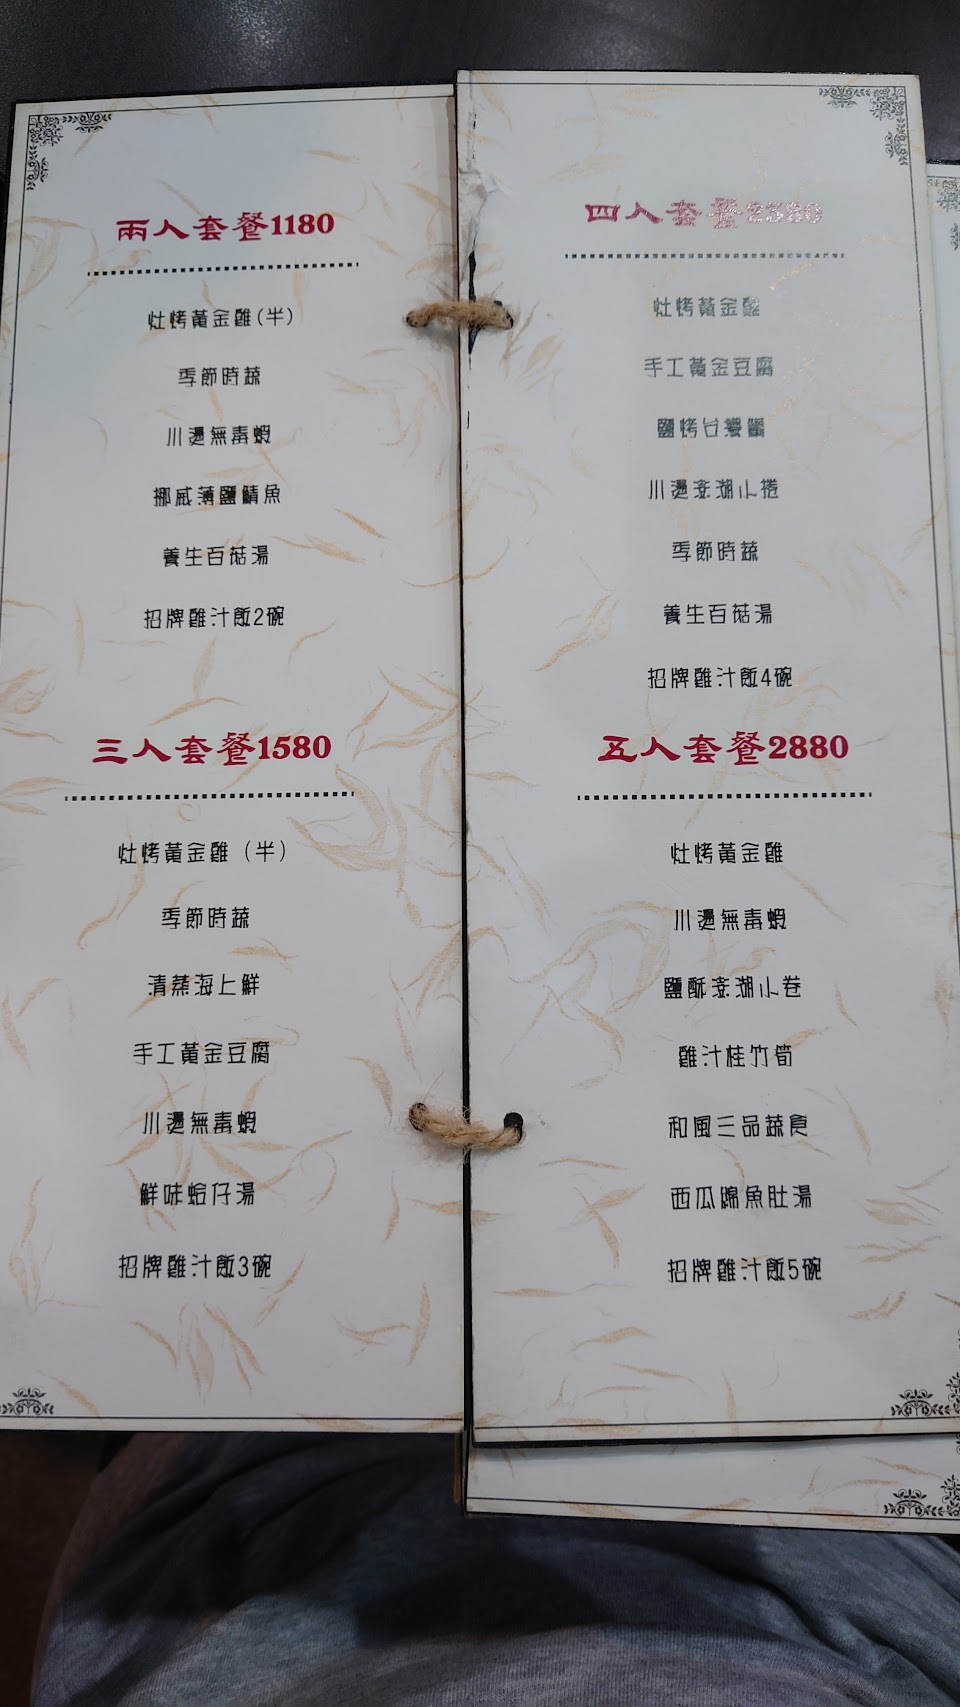 兩人套餐1180
灶烤黃金雞(半)
季節時蔬
川燙無毒蝦
挪威薄鹽鯖魚
養生百菇湯
招牌雞汁飯2碗
三人套餐1580
灶烤黃金雞（半）
季節時蔬
清蒸海上鮮
手工黃金豆腐
川燙無毒蝦
鮮味蛤仔湯
招牌雞汁飯3碗
四人套餐
灶烤黃金雞
手工黃金豆腐
鹽烤台灣鯛
川燙澎湖小捲
季節時蔬
養生百菇湯
招牌雞汁飯4碗
五人套餐2880
灶烤黃金雞
川燙無毒蝦
鹽酥澎湖小卷
雞汁桂竹筍
和風三品蔬食
西瓜綿魚肚湯
招牌雞汁飯5碗